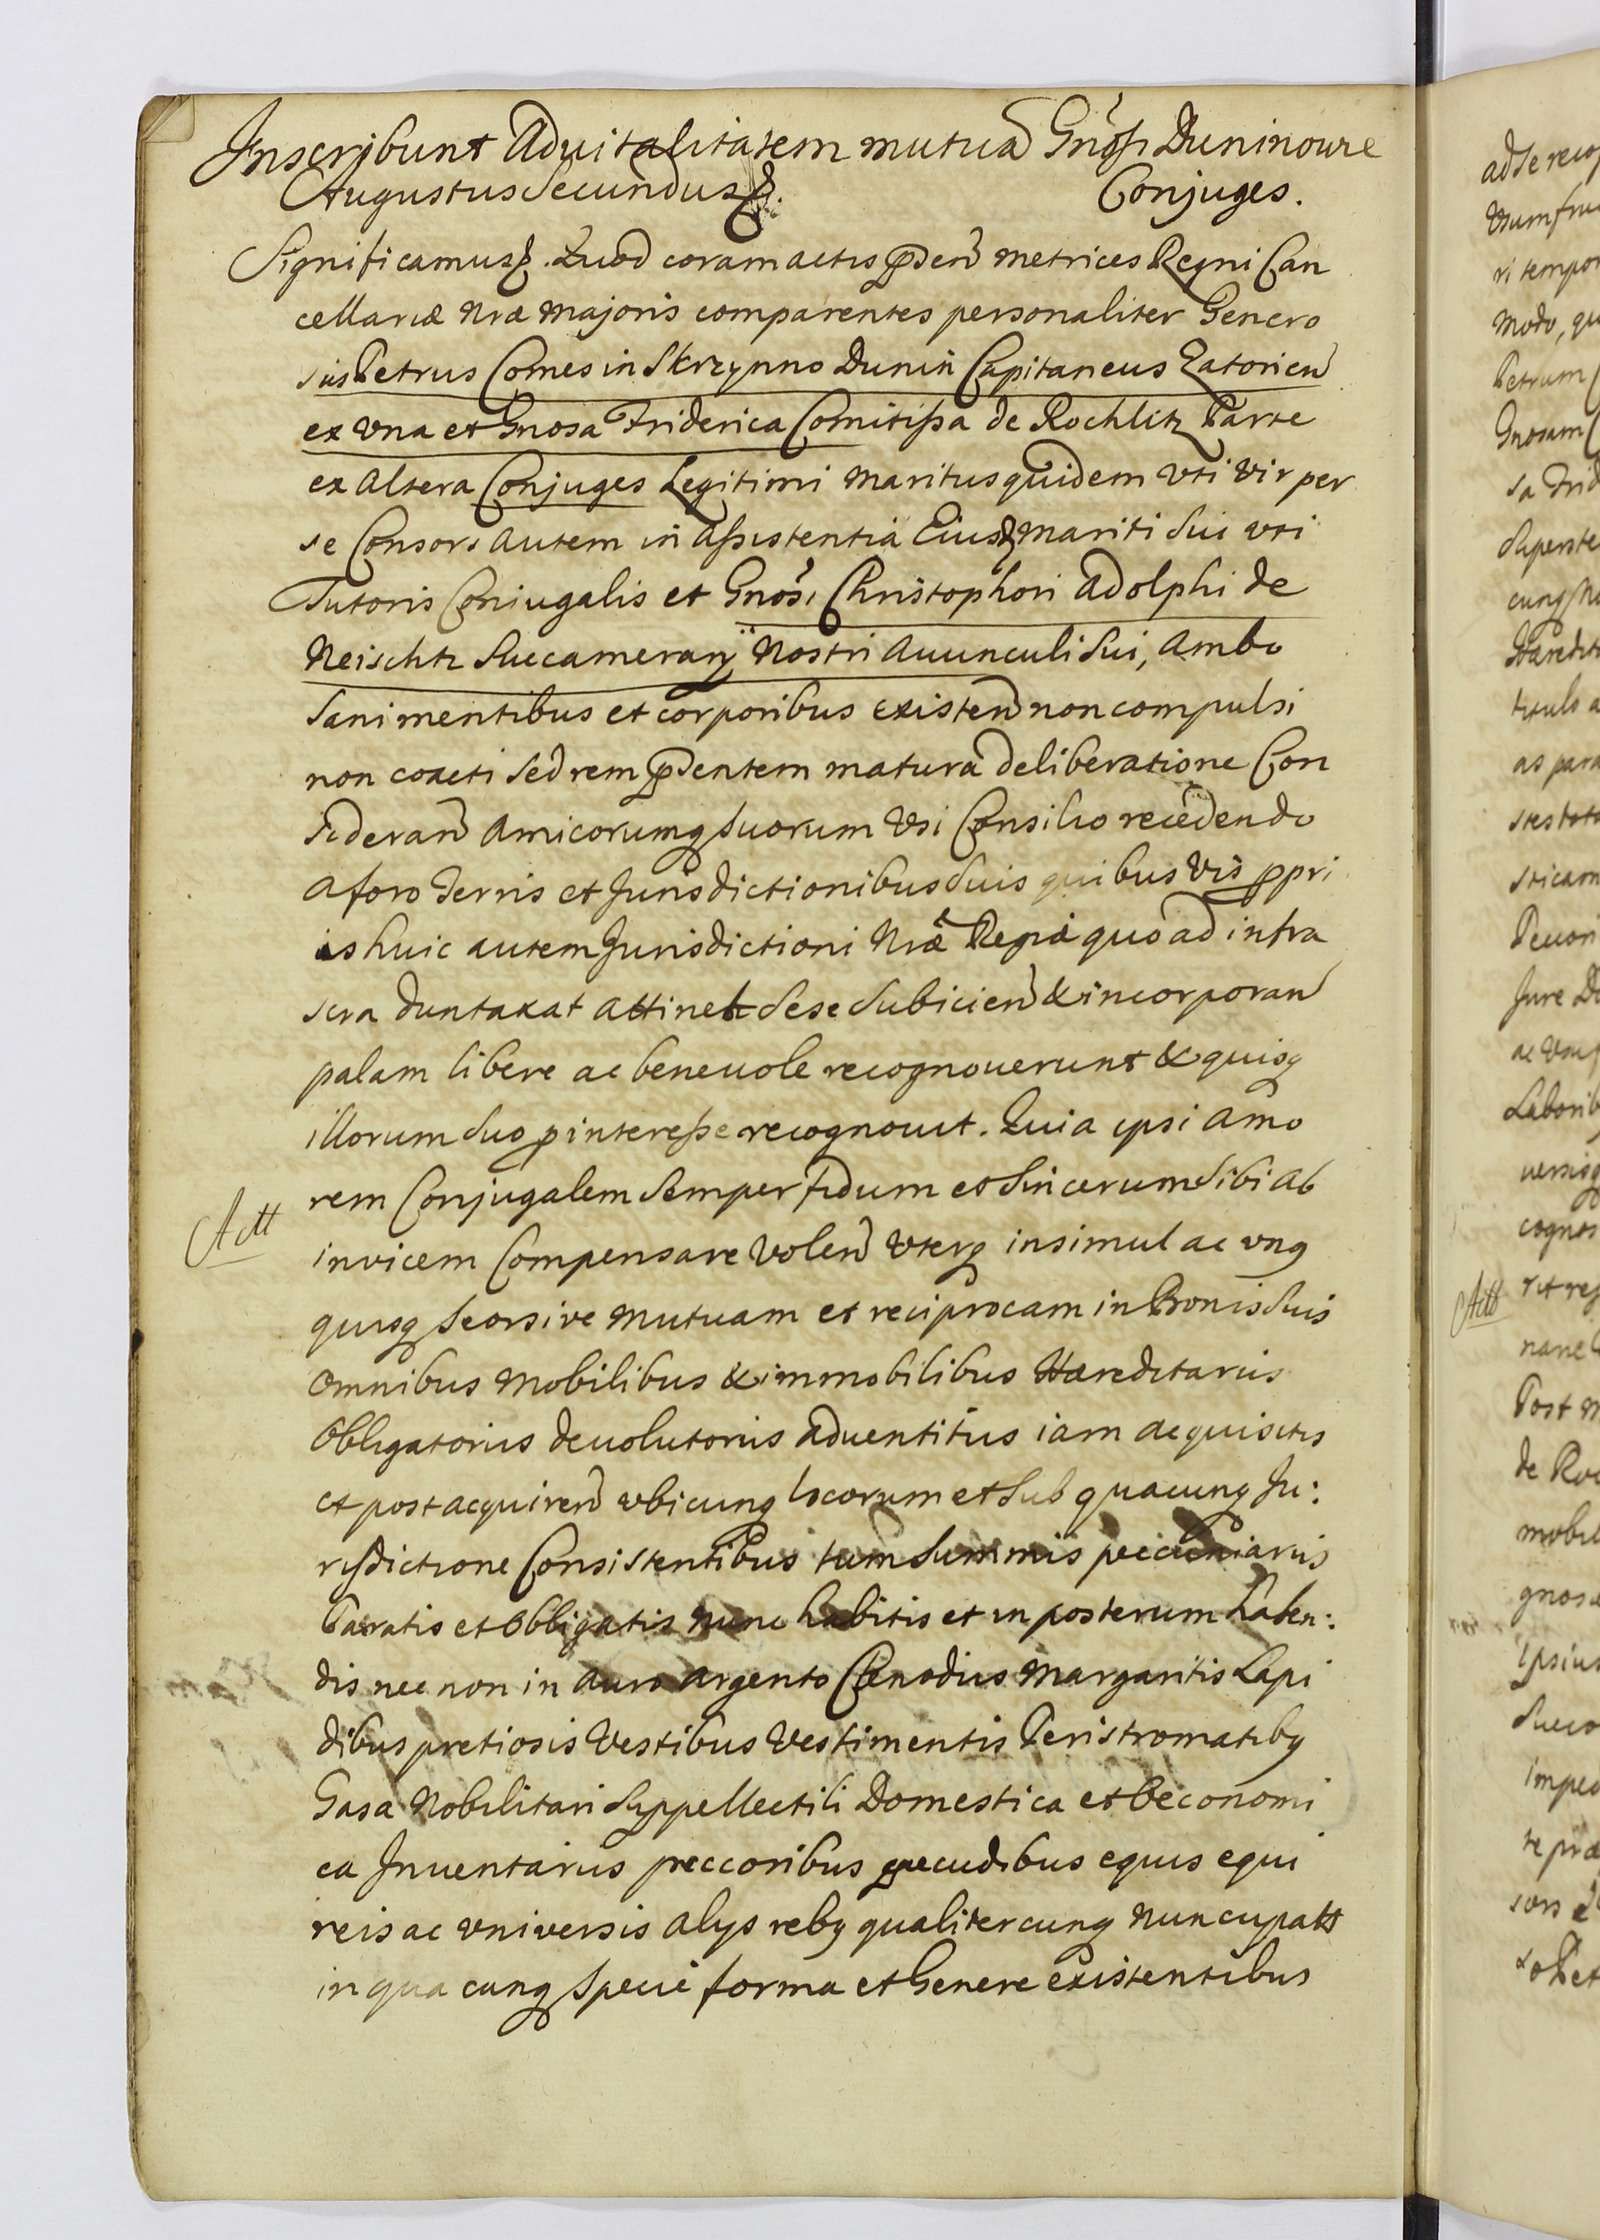 Inscribunt Aduitalitatem mutuã Gnõsi Duninowie
Augustus Secundus &. Conjuges.
Significamus &. Quod coram actis pñden̄ metrices Regni Can
cellariæ Nræ Majoris comparentes personaliter Genero
sus Petrus Comes in Skrzynno Dunin Capitaneus Zatorien̄
ex vna et Gnosa Friderica Comitissa de Rochlitz Parte
ex altera Conjuges Legitimi Maritus quidem vti vir per
se Consors autem in Assistentia Eiusd Mariti Sui vti
Tutoris Coniugalis et Gnosi Christophori Adolphi de
Neischtz Succamerarÿ Nostri Auunculi Sui, Ambo
Sani mentibus et corporibus existen̄ non compulsi
non coacti Sed rem pñdentem matura deliberatione Con
Sideran̄ Amicorumq Suorum Vsi Consilio recedendo
a foro Terris et Jurisdictionibus Suis quibus Vis ppri
is huic autem Jurisdictioni Nræ Regiæ quo ad infra
scra duntaxat attinet Sese Subicien̄ & incorporan̄
palam libere ac beneuole recognouerunt & quisq
illorum Suo p interesse recognouit. Quia ipsi Amo
rem Conjugalem Semper fidum et Sincerum Sibi ab
Att
invicem Compensare Volen̄ Vterq insimul ac vnq
quisq Seorsive Mutuam et reciprocam in Bonis Suis
Omnibus Mobilibus & immobilibus Hæreditariis
Obligatoriis deuolutoriis aduentitiis iam acquisitis
et post acquiren̄ vbicunq locorum et Sub quacunq Ju:
risdictione Consistentibus tum Summis pecuniariis
Paratis et Obligatis nunc habitis et in posterum haben:
dis nec non in auro argento Clenodiis Margaritis Lapi
dibus pretiosis Vestibus Vestimentis Peristromatibq
Gasa Nobilitari Suppellectili Domestica et Oeconomi
ca Inuentariis peccoribus pecudibus equis equi
reis ac vniversis alys rebq qualitercunq nuncupatt
in qua cunq Specie forma et Genere existentibus